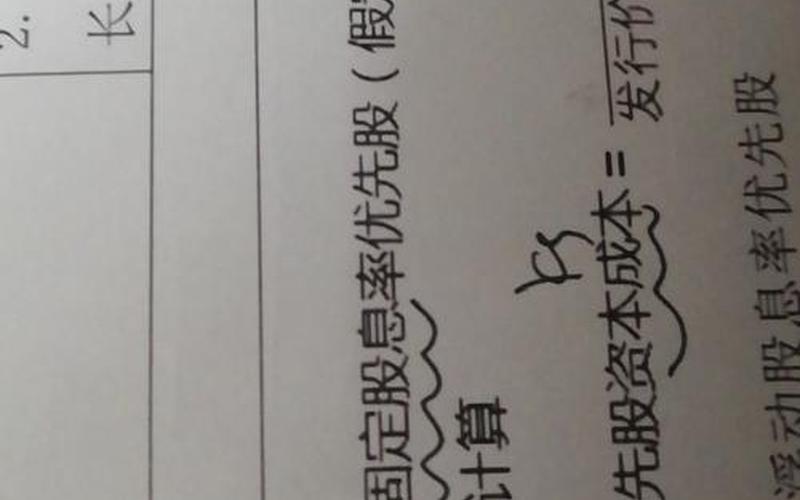 2.
长
固定股息率优先股（假
计算
Ks
先股资本成本=
发行价
浮动股息率优先股